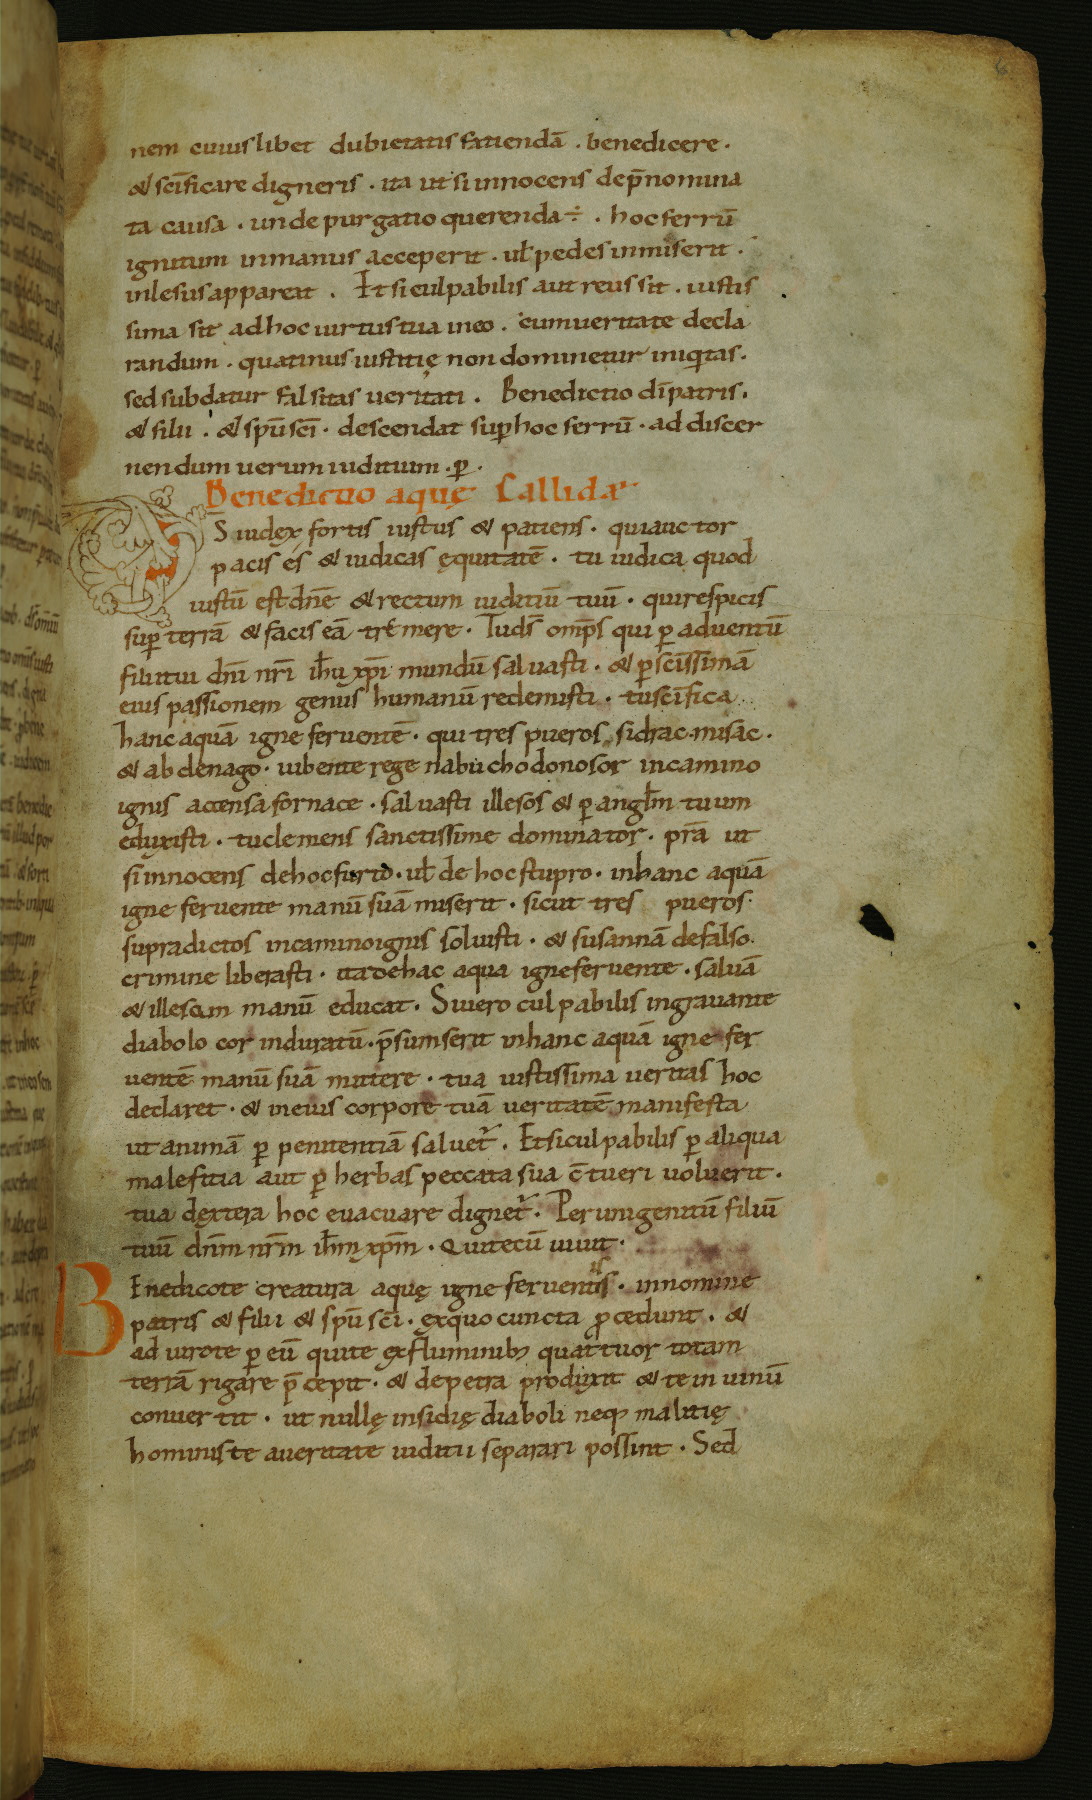 nem cuiuslibet dubietatis fatiendā . benedicere .
& sc̄ificare digneris . ita ut si innocens de p̄nomina
ta causa . unde purgatio querenda ÷ . hoc ferrū
ignitum inmanus acceperit . ul̄ pedes inmiserit .
inlesus appareat . Et si culpabilis aut reus sit . iustis
sima sit ad hoc uirtus tua in eo . cum ueritate decla
randum . quatinus iustitię non dominetur iniq̇tas .
sed subdatur falsitas ueritati . Benedictio dī patris .
& filii . & sp̄u sc̄i . descendat suꝑ hoc ferrū . ad discer
nendum uerum iuditium . ꝑ .
Benedictio aquę Callidae
D̄S iudex fortis iustus & patiens . qui auctor
pacis és & iudicas ęquitatē . tu iudica quod
iustū est dn̄e & rectum iuditiū tuū . qui respicis
suꝑ terrā & facis eā tremere . Tu ds̄ omp̄s qui ꝑ aduentū
filii tui dn̄i nr̄i ih̄u xp̄i mundū saluasti . & ꝑ sc̄issimā
eius passionem genus humanū redemisti . tu sc̄ifica
hanc aquā igne feruentē . qui tres pueros sidrac . misac .
& abdenago . iubente rege nabuchodonosor incamino
ignis accensa fornace . saluasti illesos & ꝑ anglm̄ tuum
eduxisti . tu clemens sanctissime dominator . pr̄a ut
si innocens de hoc furto . ul̄ de hoc stupro . in hanc aquā
igne feruente manū suā miserit . sicut tres pueros .
supradictos incamino ignis soluisti . & susannā de falso .
crimine liberasti . ita de hac aqua igne feruente . saluā
& illesam manū educat . Si uero culpabilis ingrauante
diabolo cor induratū . p̄sumserit in hanc aquā igne fer
uentē manū suā mittere . tua iustissima ueritas hoc
declaret . & in eius corpore tuā ueritatē manifesta
ut animā ꝑ penitentiā saluet᷑ . Et si culpabilis ꝑ aliqua
malefitia aut ꝑ herbas peccata sua c̄tueri uoluerit .
tua dęxtera hoc euacuare dignet᷑ . Per unigenitū filiū
tuū dnm̄ nrm̄ ih̄m xp̄m . Qui tecū uiuit .
Benedico te creatura aquę igne feruentis . in nomine
patris & filii & sp̄u sc̄i . ęx quo cuncta ꝓcedunt . &
adiuro te ꝑ eū qui te ęx fluminibꝫ quattuor totam
terrā rigare p̄cepit . & de petra produxit & te in uinū
conuertit . ut nullę insidię diaboli neqꝫ malitię
hominis te a ueritate iuditii separari possint . Sed